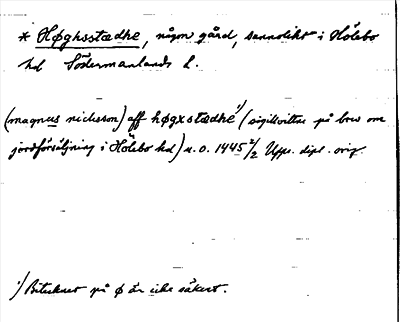 * Høghsstædhe, någon gård, sannolikt i Hölebo
hd Södermanlands l.
(magnus niclisson) aff høgxstædhe¹⁾ (sigillvittne på brev om
jordförsäljning i Hölebo hd) u. o. 1445 2/2 Upps. dipl. orig.
¹⁾ Betecknet på ø är icke säkert.